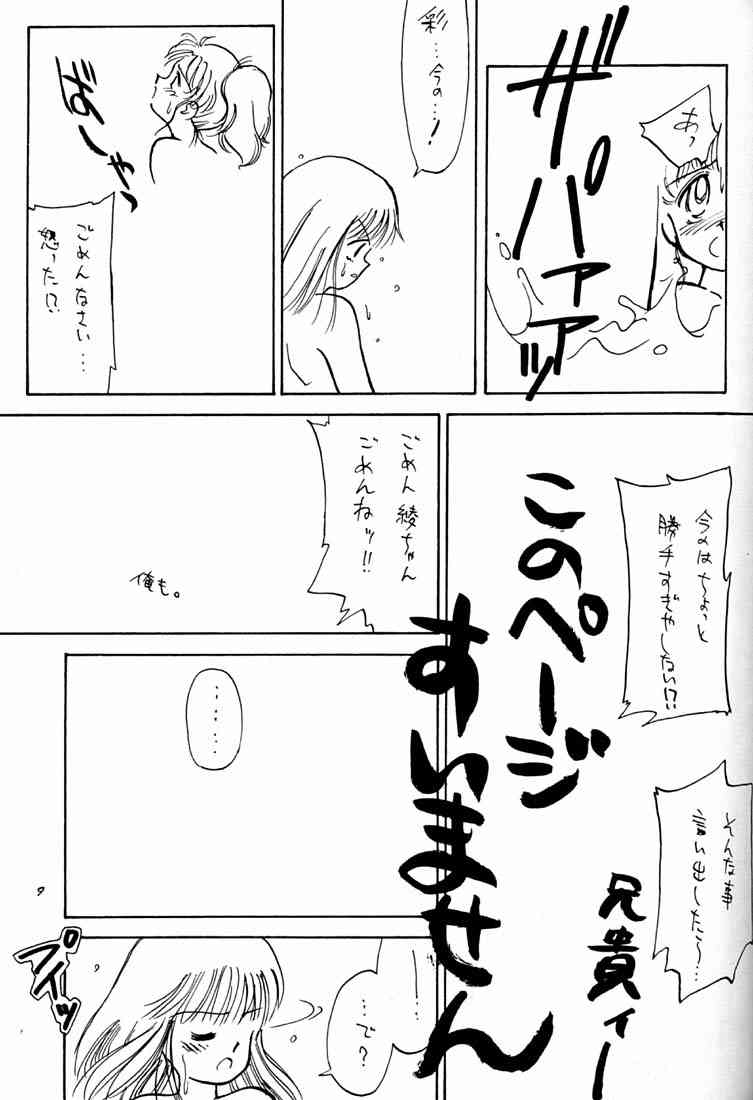 あっ
ザパァァッ
彩…今の…!
ずもしゃっ
ごめんなさい…
怒った!?
今のはちょっと
勝手すぎやしない!?
そんな事
言い出したら〜…
このページ
すいません
兄貴ィー
ごめん綾ちゃん
ごめんねッ!!
俺も。
………
…で?
プイッ